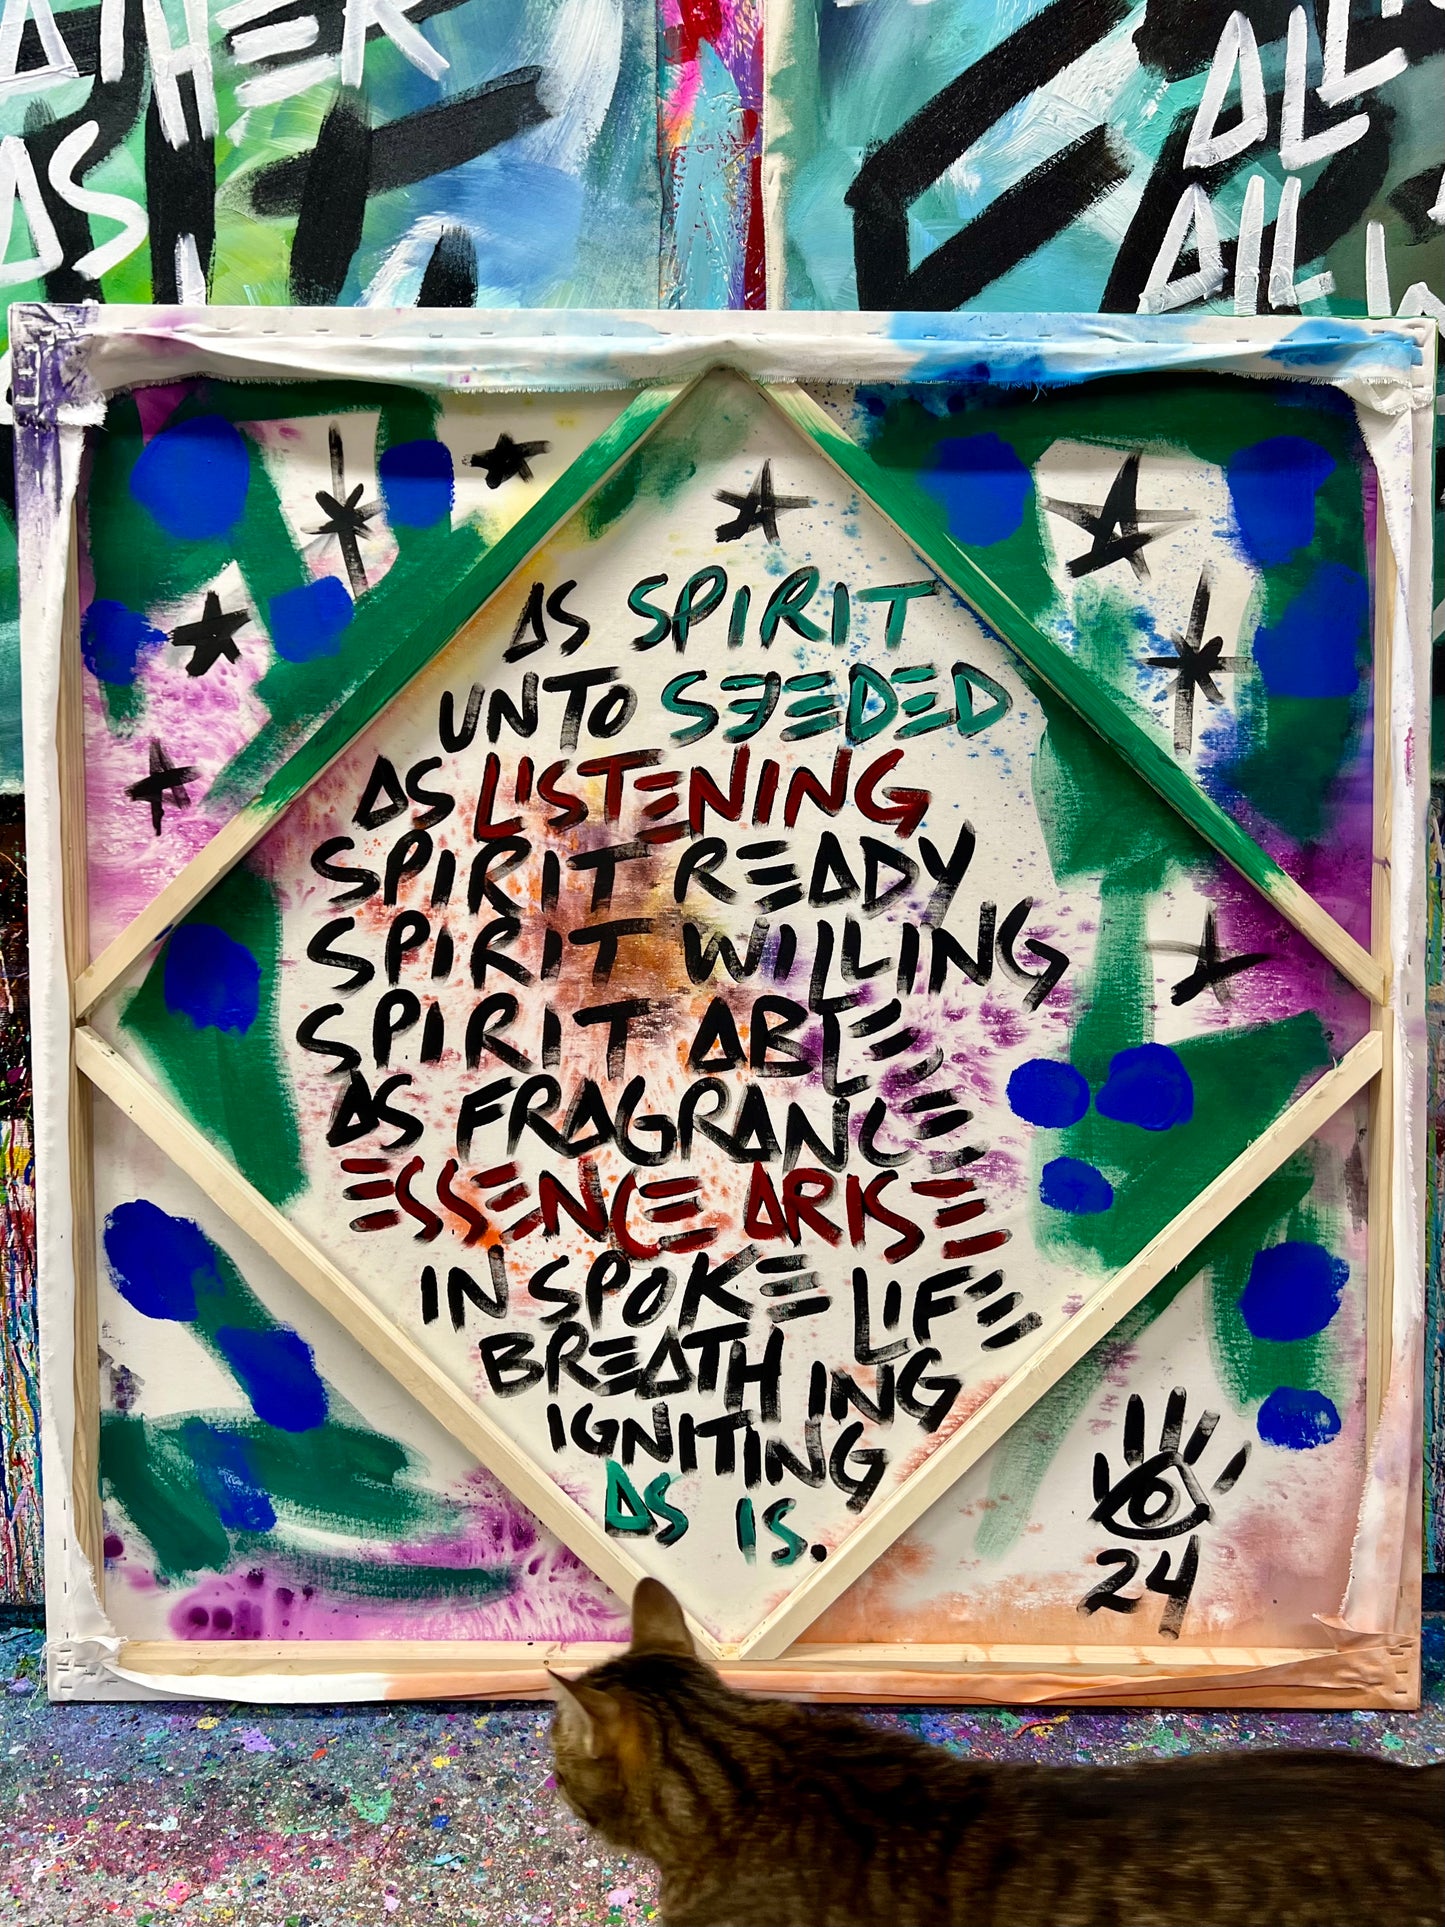 ALL
AS
ALL
AS SPIRIT
UNTO SEEDED
AS LISTENING
SPIRIT READY
SPIRIT WILLING
SPIRIT ABLE
AS FRAGRANCE
ESSENCE ARISE
IN SPOKE LIFE
BREATHING
IGNITING
AS IS.
24